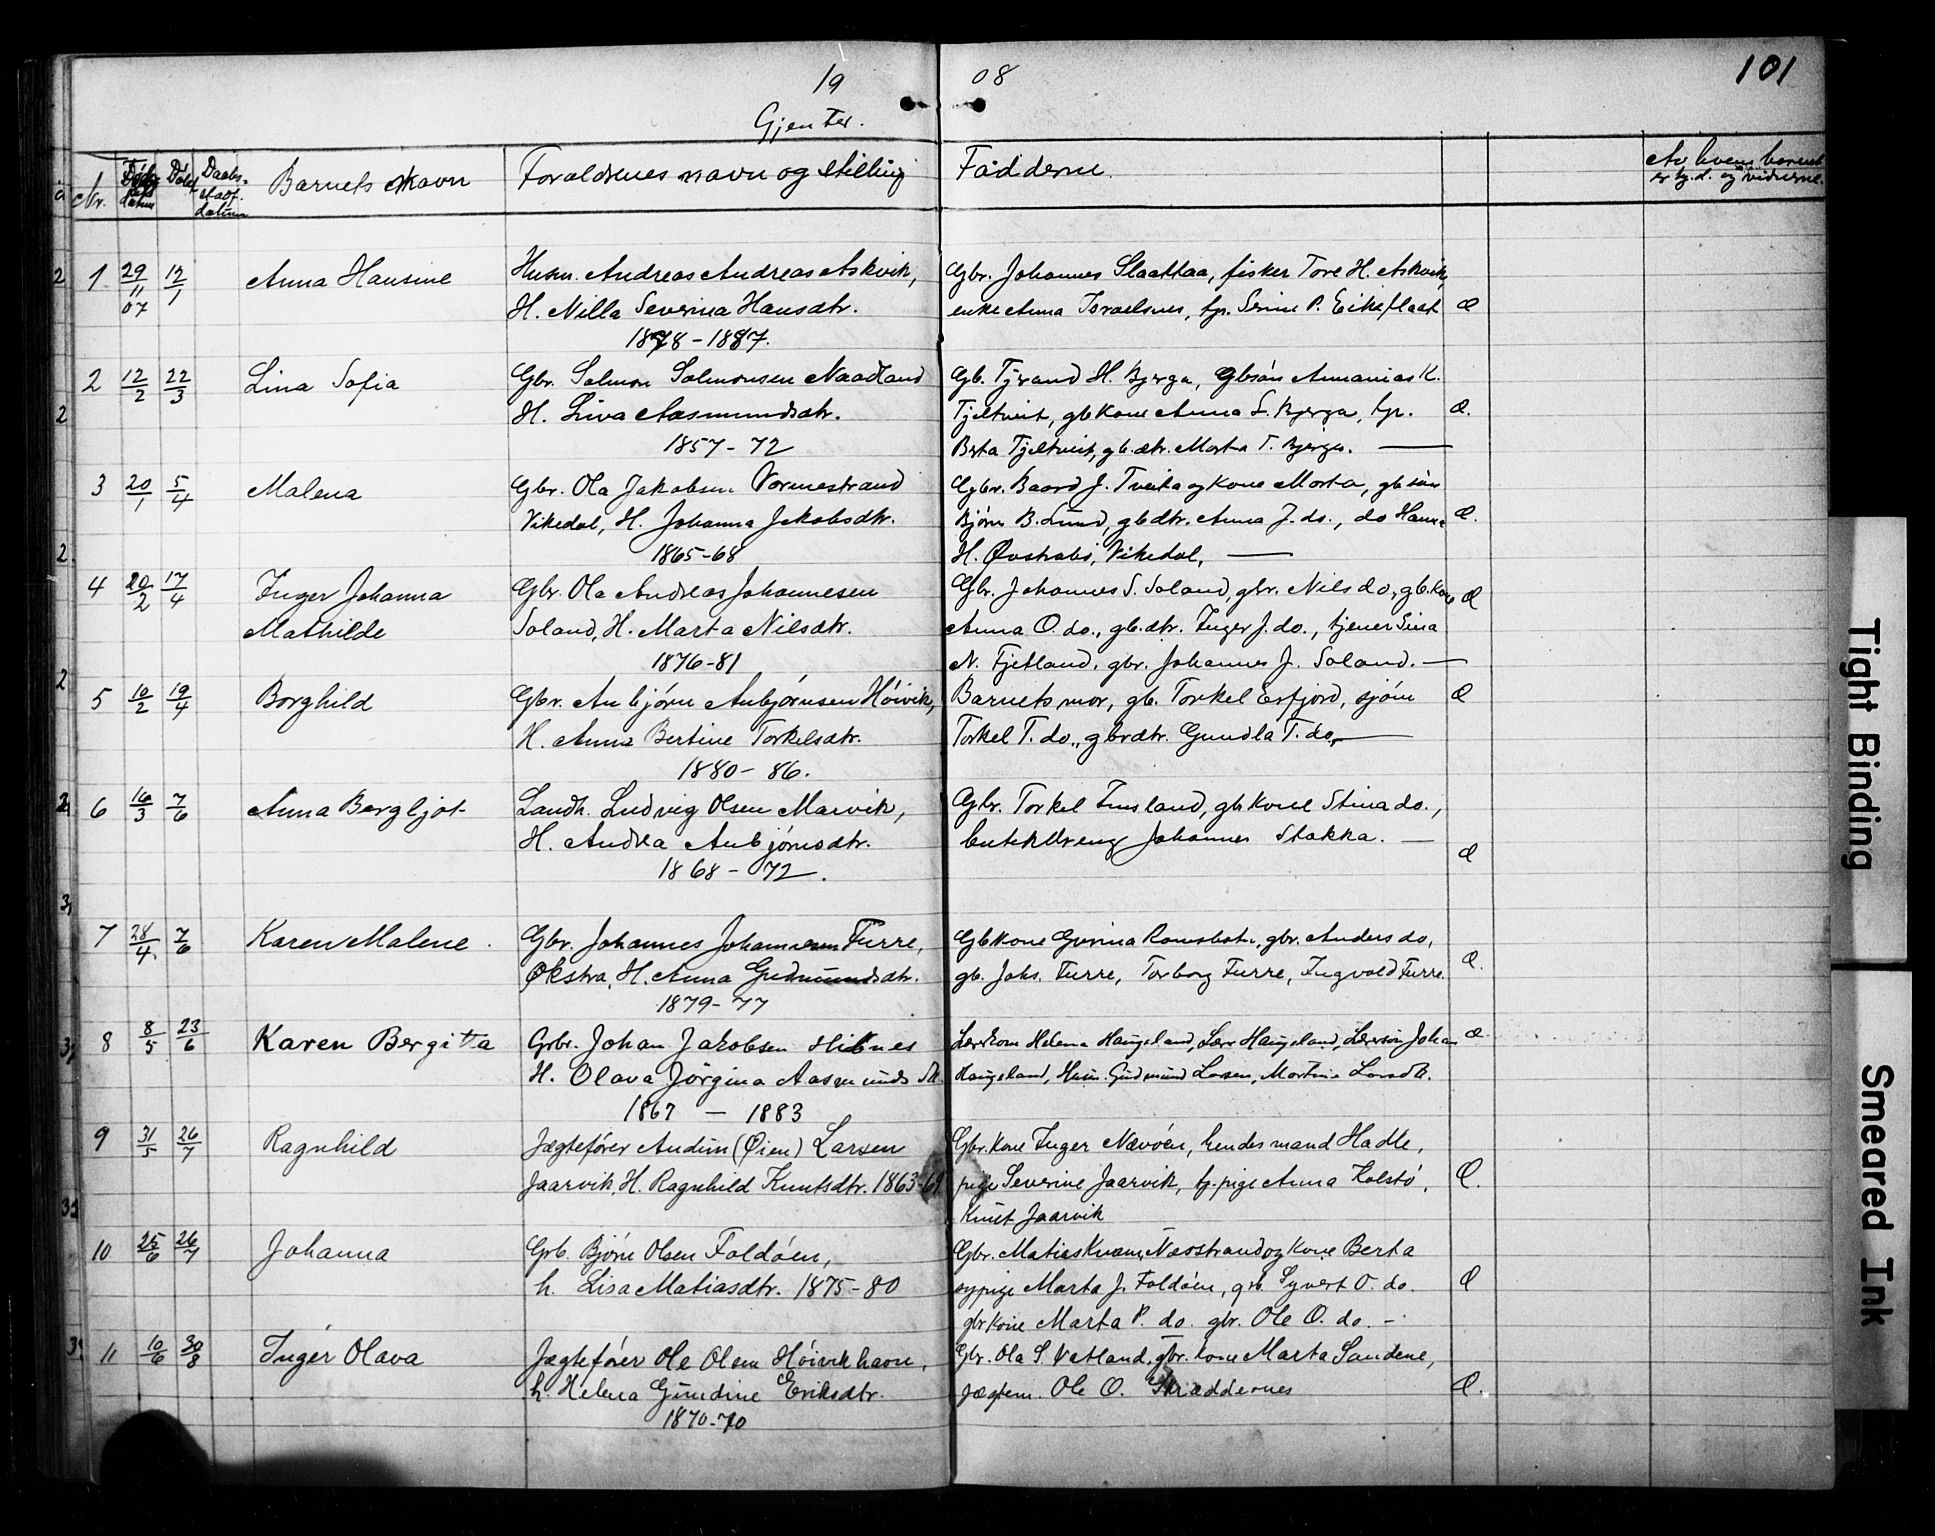 19 08
101
Gjenter.
Nr. Føds. datum Døbt Daabs-stadf. datum Barnets Navn Foraldrenes navn og stilling Fadderne. Av hvem barnet er hj.d. og vidnerne.
1 29/11 07 12/1 Anna Hansine Husm. Andreas Andreas Askvik, Gbr. Johannes Slaattaa, fisker Tore H. Askvik,
H. Nilla Severina Hansdtr. enke Anna Israelsnes, tp. Serine P. Eikeflaat Æ
1878-1887.
2 12/2 22/3 Lina Sofia Gbr. Salmon Salmonsen Naadland Gb. Tjerand H. Bjerga, Gbsøn Annanias K.
H. Liva Aasmundsdtr. Tjeltveit, gbkone Anna S. Bjerga, tp. Æ.
1857-72 Berta Tjeltveit, gb.dtr. Marta T. Bjerga.
3 20/1 5/4 Malena Gbr. Ola Jakobsen Vormestrand Gbr. Baard J. Tveita og kone Marta, gbsøn
Vikedal, H. Johanna Jakobsdtr. Bjørn B. Lund, gbdtr. Anna J. do., do Hanna Æ.
1865-68 H. Øvstabø, Vikedal,
4 20/2 17/4 Inger Johanna Gbr. Ola Andreas Johannesen Gbr. Johannes S. Soland, gbr. Nils do, gb.kone Æ
Mathilde Soland, H. Marta Nilsdtr. Anna O. do., gb.dtr. Inger J. do., tjener Sina
1876-81 N. Fjetland, gbr. Johannes J. Soland.
5 10/2 19/4 Borghild Gbr. Anbjørn Anbjørnsen Høivik, Barnets mor, gb. Torkel Erfjord, sjøm Æ
H. Anna Bertine Torkelsdtr. Torkel T. do., gbrdtr. Gundla T. do.
1880-86.
6 16/3 7/6 Anna Bergljot Landh. Ludvig Olsen Marvik, Gbr. Torkel Fins land, gbkone Stina do.,
H. Andrea Anbjørnsdtr. butikdreng Johannes Stakka. Æ
1868-72.
7 28/4. 7/6 Karen Malene. Gbr. Johannes Johannesen Furre, Gbkone Gurina Ramsbotn, gbr. Anders do,
Økstra, H. Anna Gudmundsdtr. gb. Johs. Furre, Torborg Furre, Ingvald Furre. Æ.
1879-77
8 8/5 23/6 Karen Bergitta Grbr. Johan Jakobsen Hibnes Lærerkone Helena Haugeland, Lærer Haugeland, Lærersøn Johan Æ.
H. Olava Jörgina Aasmunds Dt. Haugeland, Husm. Gudmund Larsen, Martine Larsdt.
1867 — 1883
9 31/5 26/7 Ragnhild Jægtefører Audun (Øien) Larsen Gbr.kone Inger Nævøen, hendes mand Hadle,
Jaarvik, H. Ragnhild Knutsdtr. 1863-69. pige Severine Jaarvik, tj.pige Anna Kolstø, Æ.
Knut Jaarvik
10 25/6 26/7 Johanna Grb. Bjørn Olsen Foldøen, Gbr. Matias Kvam, Næsstrand og kone Berta
h. Lisa Matiasdtr. 1875-80 sypige Marta J. Foldøen, grb. Syvert O. do. Æ
gbrkone Marta P. do. gbr. Ole O. do. -
11 10/6 30/8 Inger Olava Jægtefører Ole Olsen Høivik havn, Gbr. Ola S. Vatland, gbr. kone Marta Sandene,
h. Helena Gundine Eriksdtr. Jægtem. Ole O. Skræddernes Æ.
1870-70
Tight Binding
Smeared Ink